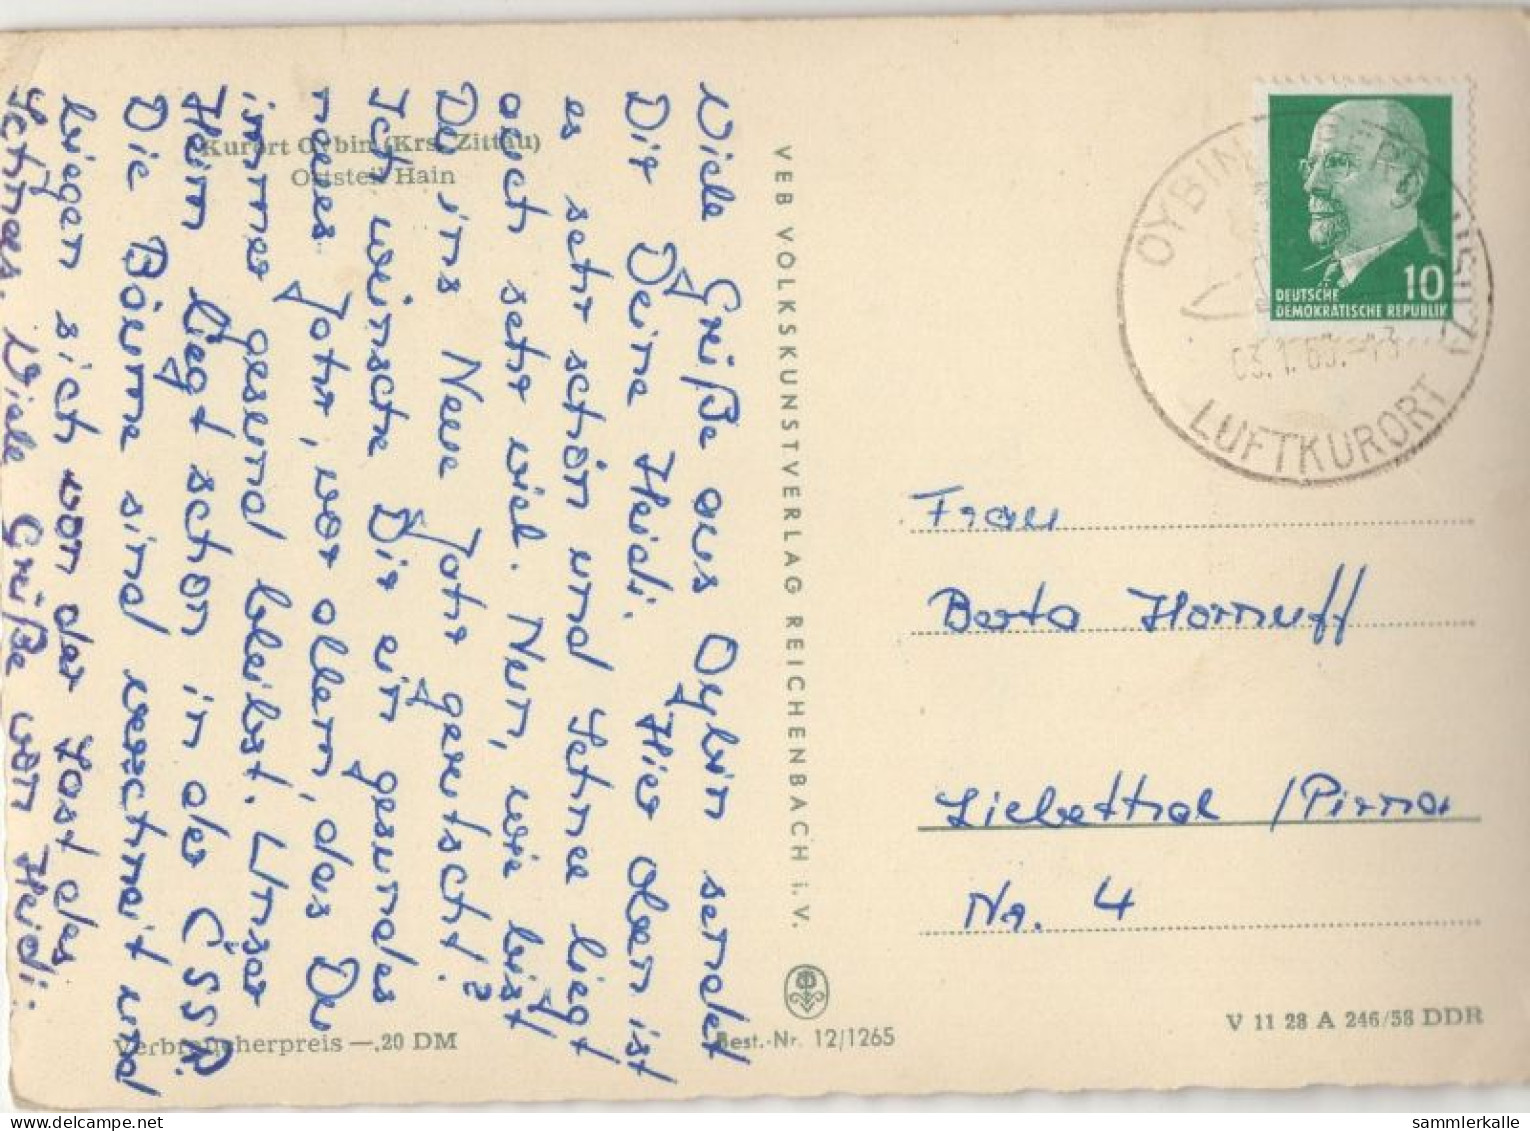 Viele Grüße aus Oybin sendet
Dir Deine Heidi. Hier oben ist
es sehr schön und Schnee liegt
auch sehr viel. Nun, wie bist
Du ins Neue Jahr gerutscht?
Ich wünsche Dir ein gesundes
neues Jahr, vor allem, das Du
immer gesund bleibst. Unser
Heim liegt schon in der ČSSR.
Die Bäume sind verschneit und
biegen sich von der Last des
Schnees. Viele Grüße von Heidi.
Kurort Oybin (Krs. Zittau)
Ortsteil Hain
Verbraucherpreis —,20 DM
VEB VOLKSKUNSTVERLAG REICHENBACH i. V.
Best.-Nr. 12/1265
10
DEUTSCHE
DEMOKRATISCHE REPUBLIK
OYBIN
03.1.63.-13
LUFTKURORT
Frau
Berta Hornuff
Liebethal / Pirna
Nr. 4
V 11 28 A 246/58 DDR
sammlerkalle